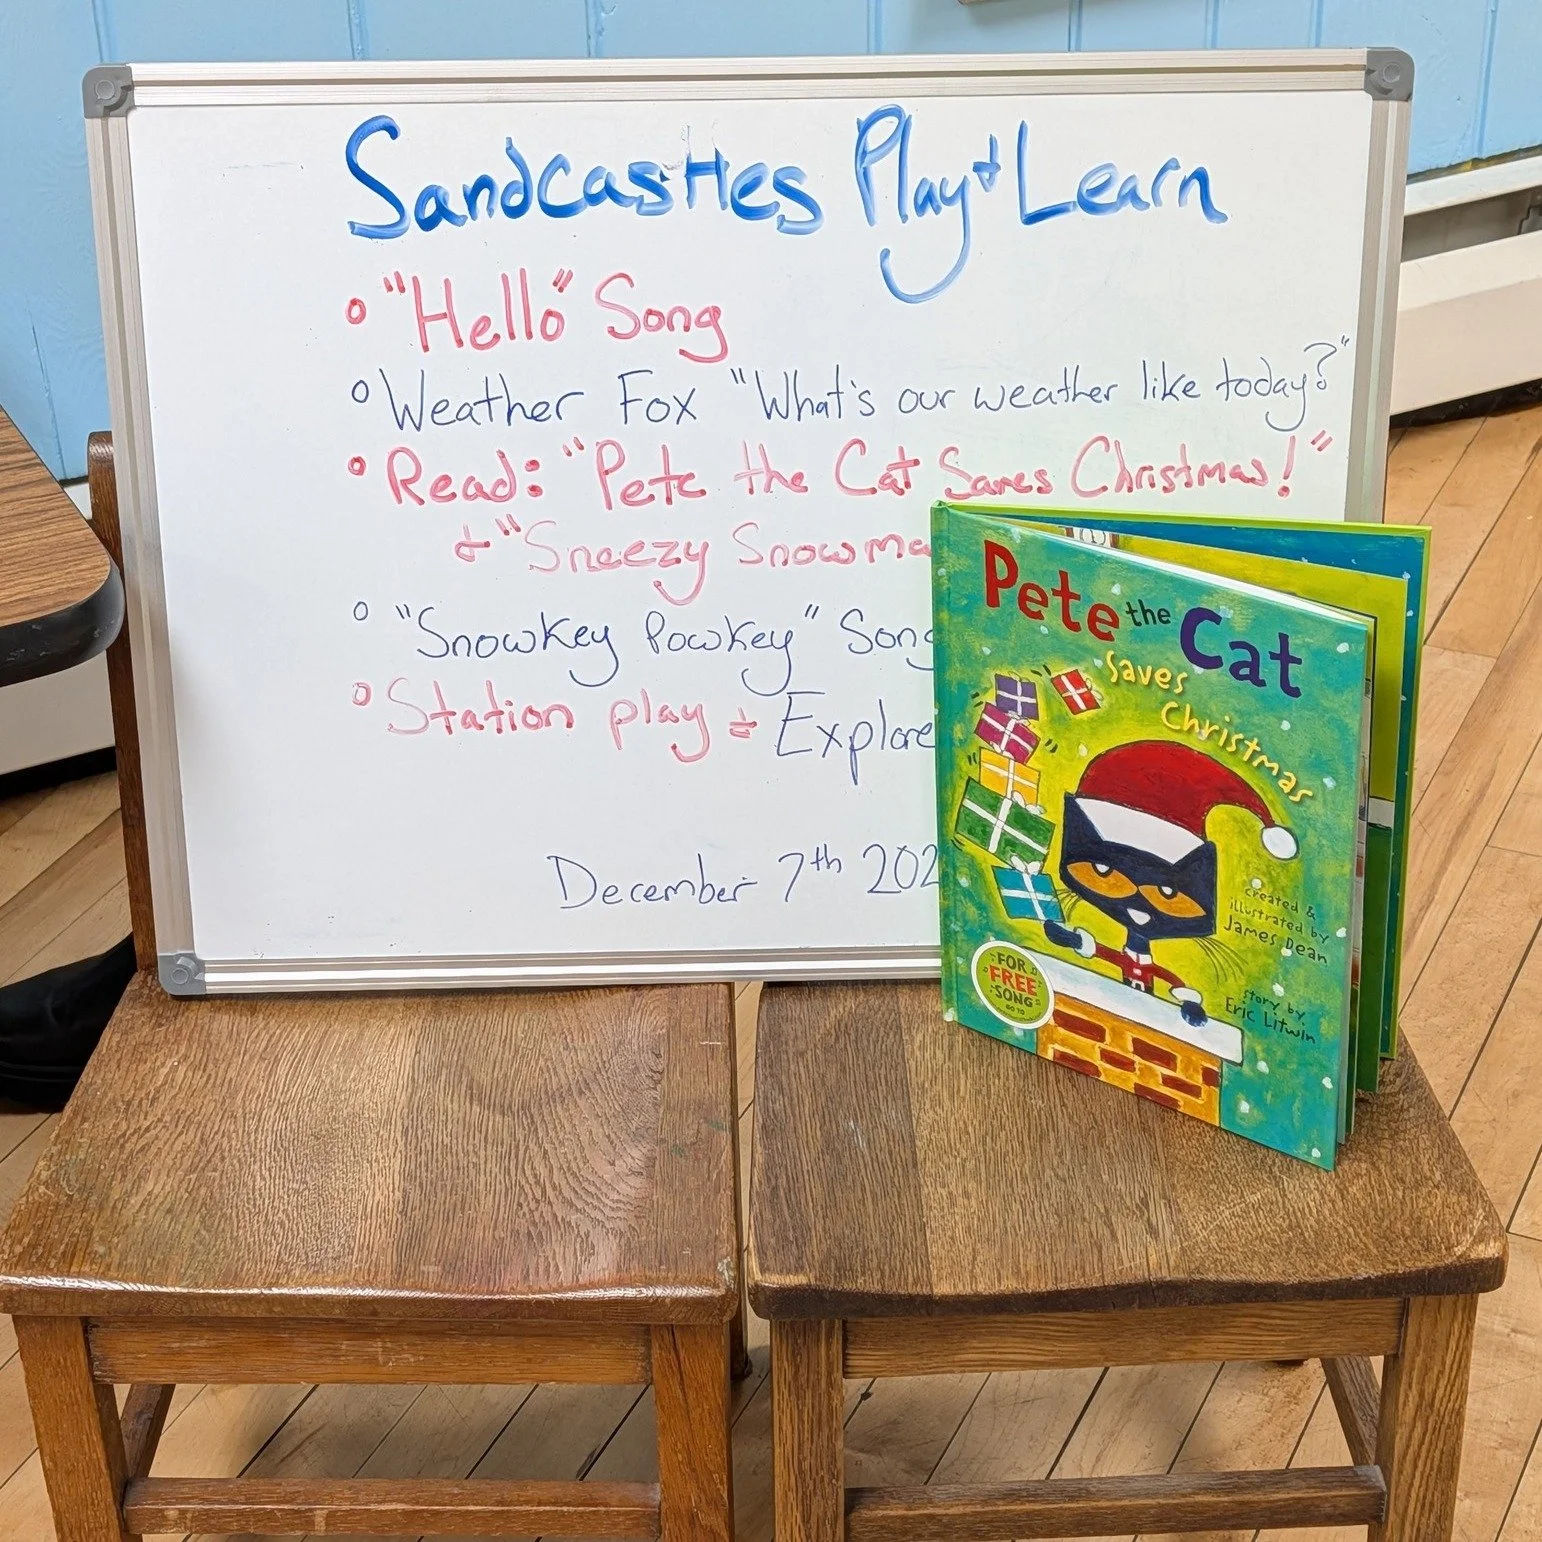 Sandcastles Play + Learn
"Hello" Song
Weather Fox "What's our weather like today?"
Read: "Pete the Cat Saves Christmas!"
+ "Sneezy Snowma
"Snowkey Powkey" Song
Station play + Explore
December 7th 202
Pete the Cat
Saves
Christmas
created &
illustrated by
James Dean
story by
Eric Litwin
FOR A
FREE
SONG
GO TO